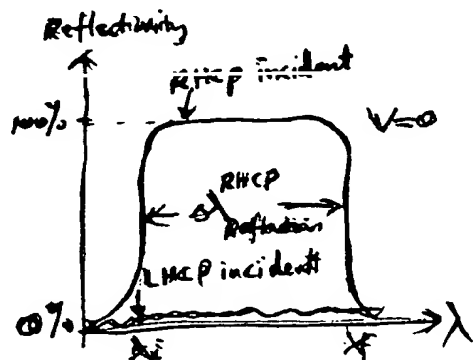 Reflectivity
RHCP Incident
100%
V=0
RHCP
Δλ
Reflection
LHCP incident
0%
λ